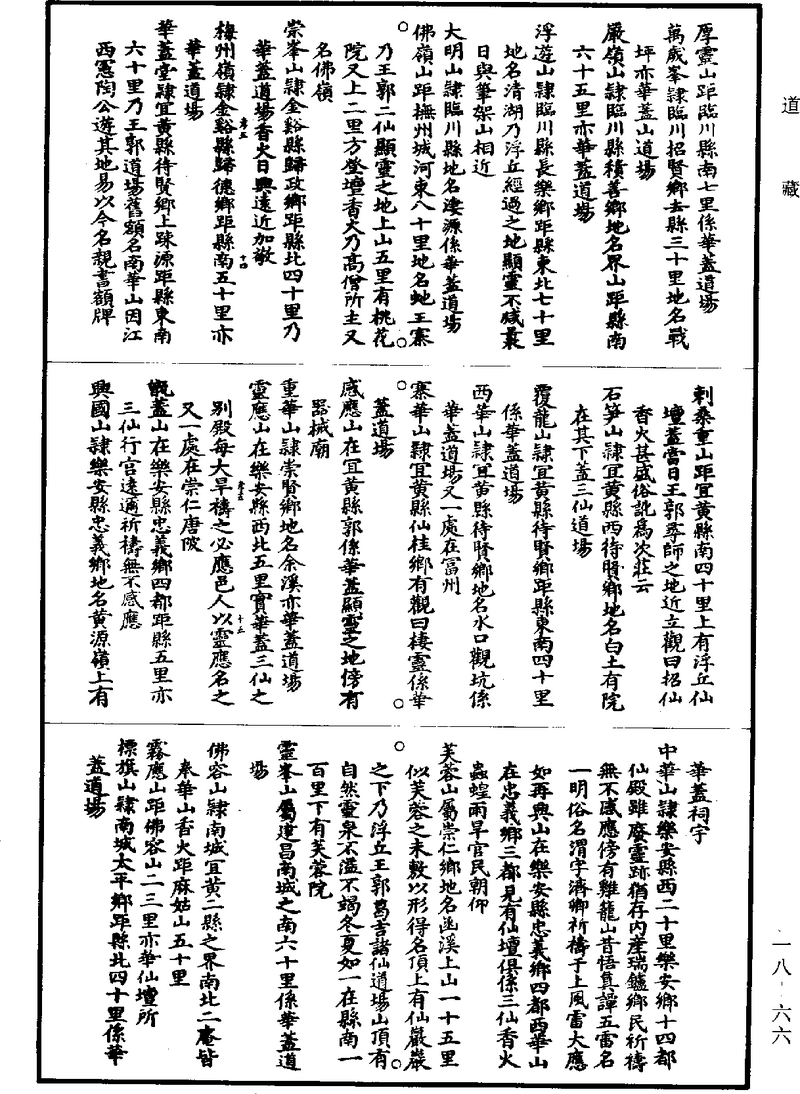 道藏
厚靈山距臨川縣南七里係華蓋道場
萬歲峯隸臨川招賢鄉去縣三十里地名戰
坪亦華蓋山道場
嚴嶺山隸臨川縣積善鄉地名界山距縣南
六十五里亦華蓋道場
浮遊山隸臨川縣長樂鄉距縣東北七十里
地名清湖乃浮丘經過之地顯靈不咸最
日與筆架山相近
大明山隸臨川縣地名淒源係華蓋道場
佛嶺山距撫州城河東八十里地名虵王寨
乃王郭二仙顯靈之地上山五里有桃花
院又上二里方登壇香火乃高僧所主又
名佛嶺
崇峯山隸金谿縣歸政鄉距縣北四十里乃
華蓋道場香火日興遠近加敬
梅州嶺隸金谿縣歸德鄉距縣南五十里亦
華蓋道場
華蓋堂隸宜黃縣待賢鄉上疎源距縣東南
六十里乃王郭道場舊額名南華山因江
西憲陶公遊其地易以今名親書額牌
刺桑重山距宜黃縣南四十里上有浮丘仙
壇蓋當日王郭尋師之地近立觀曰招仙
香火甚盛俗訛為次莊云
石笋山隸宜黃縣西待賢鄉地名白土有院
在其下蓋三仙道場
覆龍山隸宜黃縣待賢鄉距縣東南四十里
係華蓋道場
西華山隸宜黃縣待賢鄉地名水口觀坑係
華蓋道場又一處在富州
寨華山隸宜黃縣仙桂鄉有觀曰棲靈係華
蓋道場
感應山在宜黃縣郭係華蓋顯靈之地傍有
器械廟
重華山隸崇賢鄉地名余溪亦華蓋道場
靈應山在樂安縣西北五里實華蓋三仙之
別殿每大旱禱之必應邑人以靈應名之
又一處在崇仁唐陂
甑蓋山在樂安縣忠義鄉四都距縣五里亦
三仙行宮遠邇祈禱無不感應
興國山隸樂安縣忠義鄉地名黃源嶺上有
華蓋祠宇
中華山隸樂安縣西二十里樂安鄉十四都
仙殿雖廢靈跡猶存內產瑞鑪鄉民祈禱
無不感應傍有雞籠山昔悟真譚五雷名
一明俗名渭字濟卿祈禱于上風雷大應
如再興山在樂安縣忠義鄉四都西華山
在忠義鄉三都見有仙壇俱係三仙香火
蟲蝗雨旱官民朝仰
芙蓉山屬崇仁鄉地名凾溪上山一十五里
似芙蓉之未敷以形得名頂上有仙巖巖
之下乃浮丘王郭葛吉諸仙道場山頂有
自然靈泉不溢不竭冬夏如一在縣南一
百里下有芙蓉院
靈峯山屬建昌南城之南六十里係華蓋道
場
佛容山隸南城宜黃二縣之界南北二菴皆
奉華山香火距麻姑山五十里
霧應山距佛容山二三里亦華仙壇所
標旗山隸南城太平鄉距縣北四十里係華
蓋道場
一八·六六